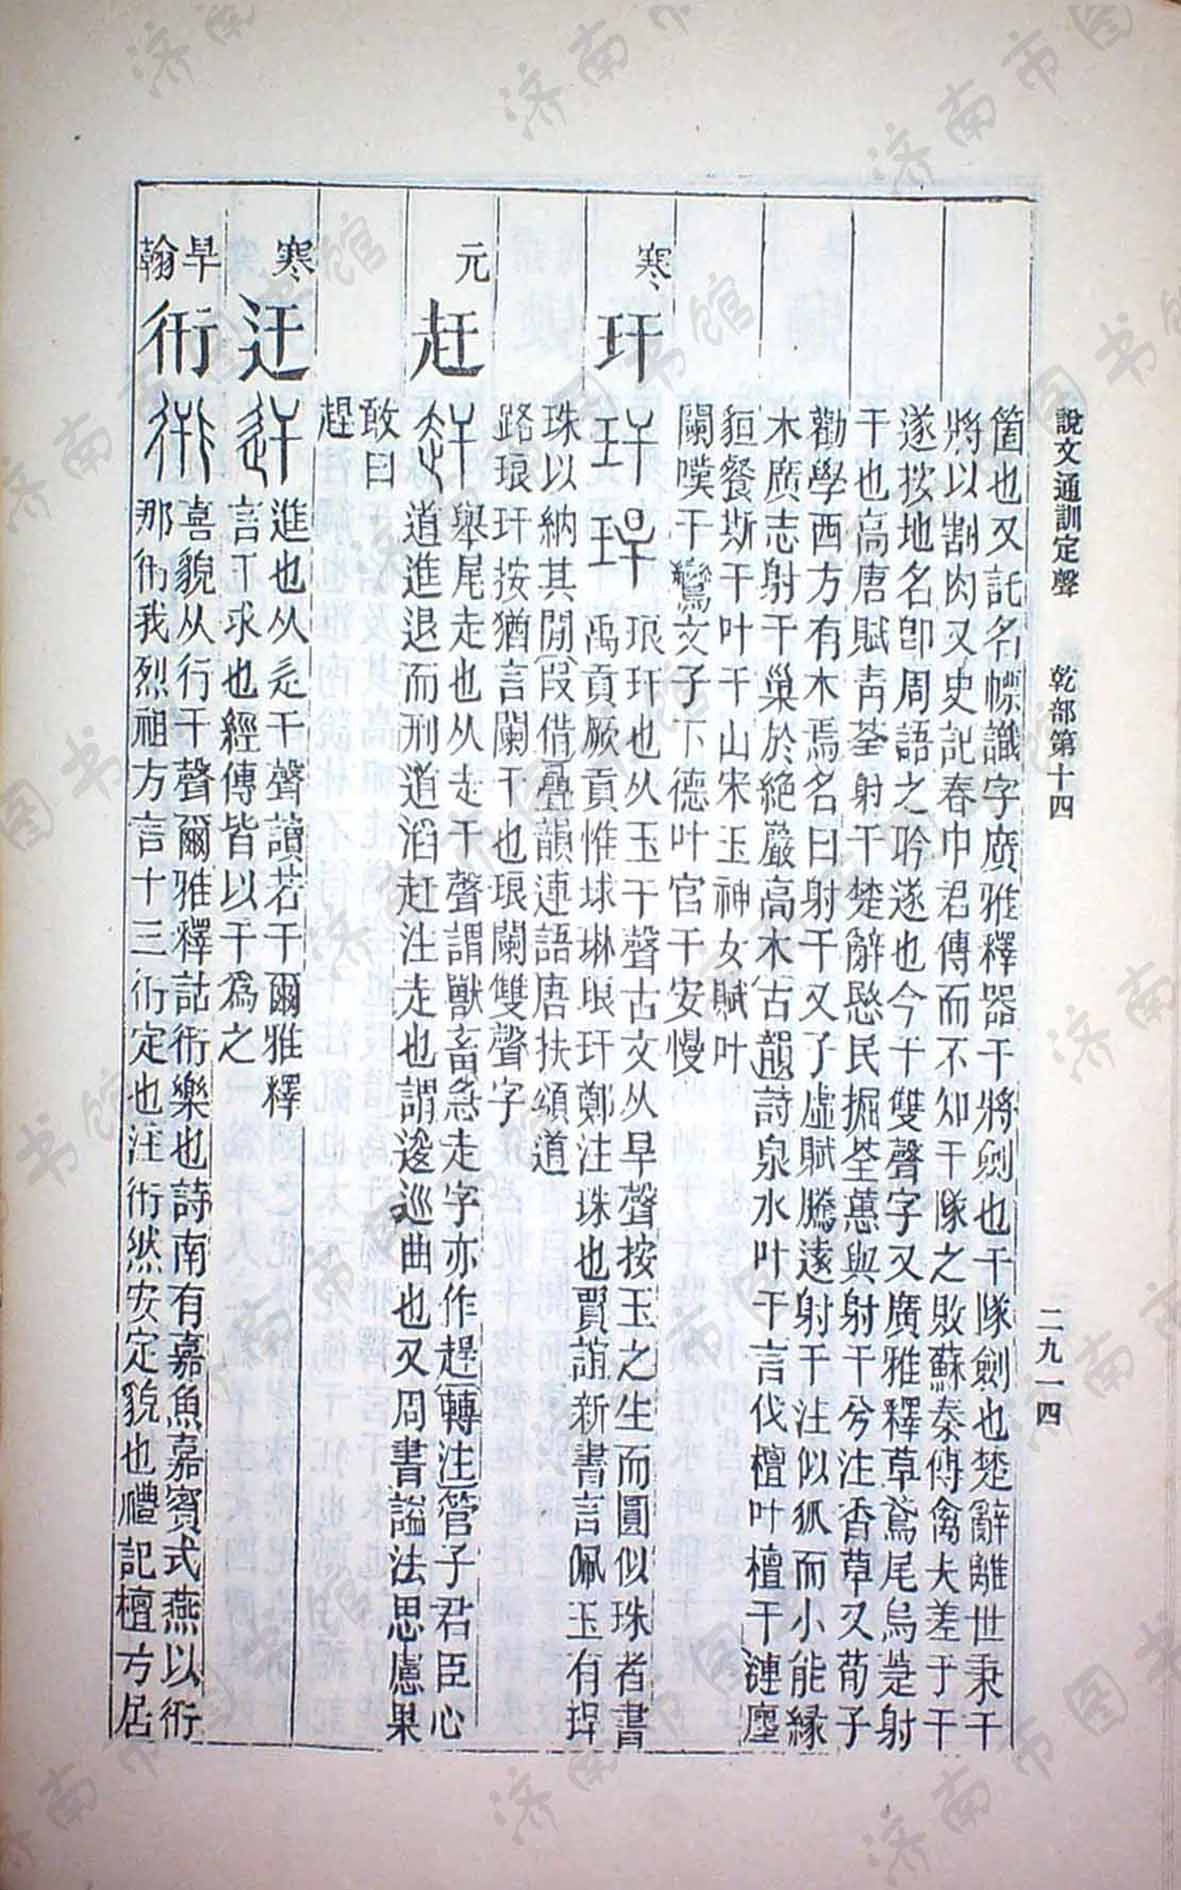 說文通訓定聲　乾部第十四　二九一四
箇也又託名幖識字廣雅釋器干將劍也干隊劍也楚辭離世秉干
將以割肉又史記春申君傳而不知干隊之敗蘇秦傳禽夫差于干
遂按地名卽周語之聆遂也今干雙聲字又廣雅釋草鳶尾烏萐射
干也高唐賦靑荃射干楚辭愍民掘荃蕙與射干兮注香草又荀子
勸學西方有木焉名曰射干又子虛賦騰遠射干注似狐而小能緣
木廣志射干巢於絕巖高木古韻詩泉水叶干言伐檀叶檀干漣廛
貆餐斯干叶干山宋玉神女賦叶
闌嘆干鸞文子下德叶官干安慢
寒
玕
琅玕也从玉干聲古文从旱聲按玉之生而圓似珠者書
禹貢厥貢惟球琳琅玕鄭注珠也賈誼新書言佩玉有珵
珠以納其閒叚借疊韻連語唐扶頌道
路琅玕按猶言闌干也琅闌雙聲字
元
赶
舉尾走也从走干聲謂獸畜急走字亦作趕轉注管子君臣心
道進退而刑道滔赶注走也謂逡巡曲也又周書謚法思慮果
敢曰
趕
寒
迀
進也从辵干聲讀若干爾雅釋
言干求也經傳皆以干爲之
旱
翰
衎
喜貌从行干聲爾雅釋詁衎樂也詩南有嘉魚嘉賓式燕以衎
那衎我烈祖方言十三衎定也注衎然安定貌也禮記檀弓居